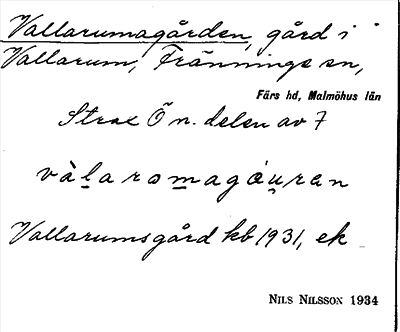 Vallarumagården, gård i
Vallarum, Fränninge sn,
Färs hd, Malmöhus län
Strax Ö n. delen av 7
Vallarumsgård kb 1931, ek
NILS NILSSON 1934